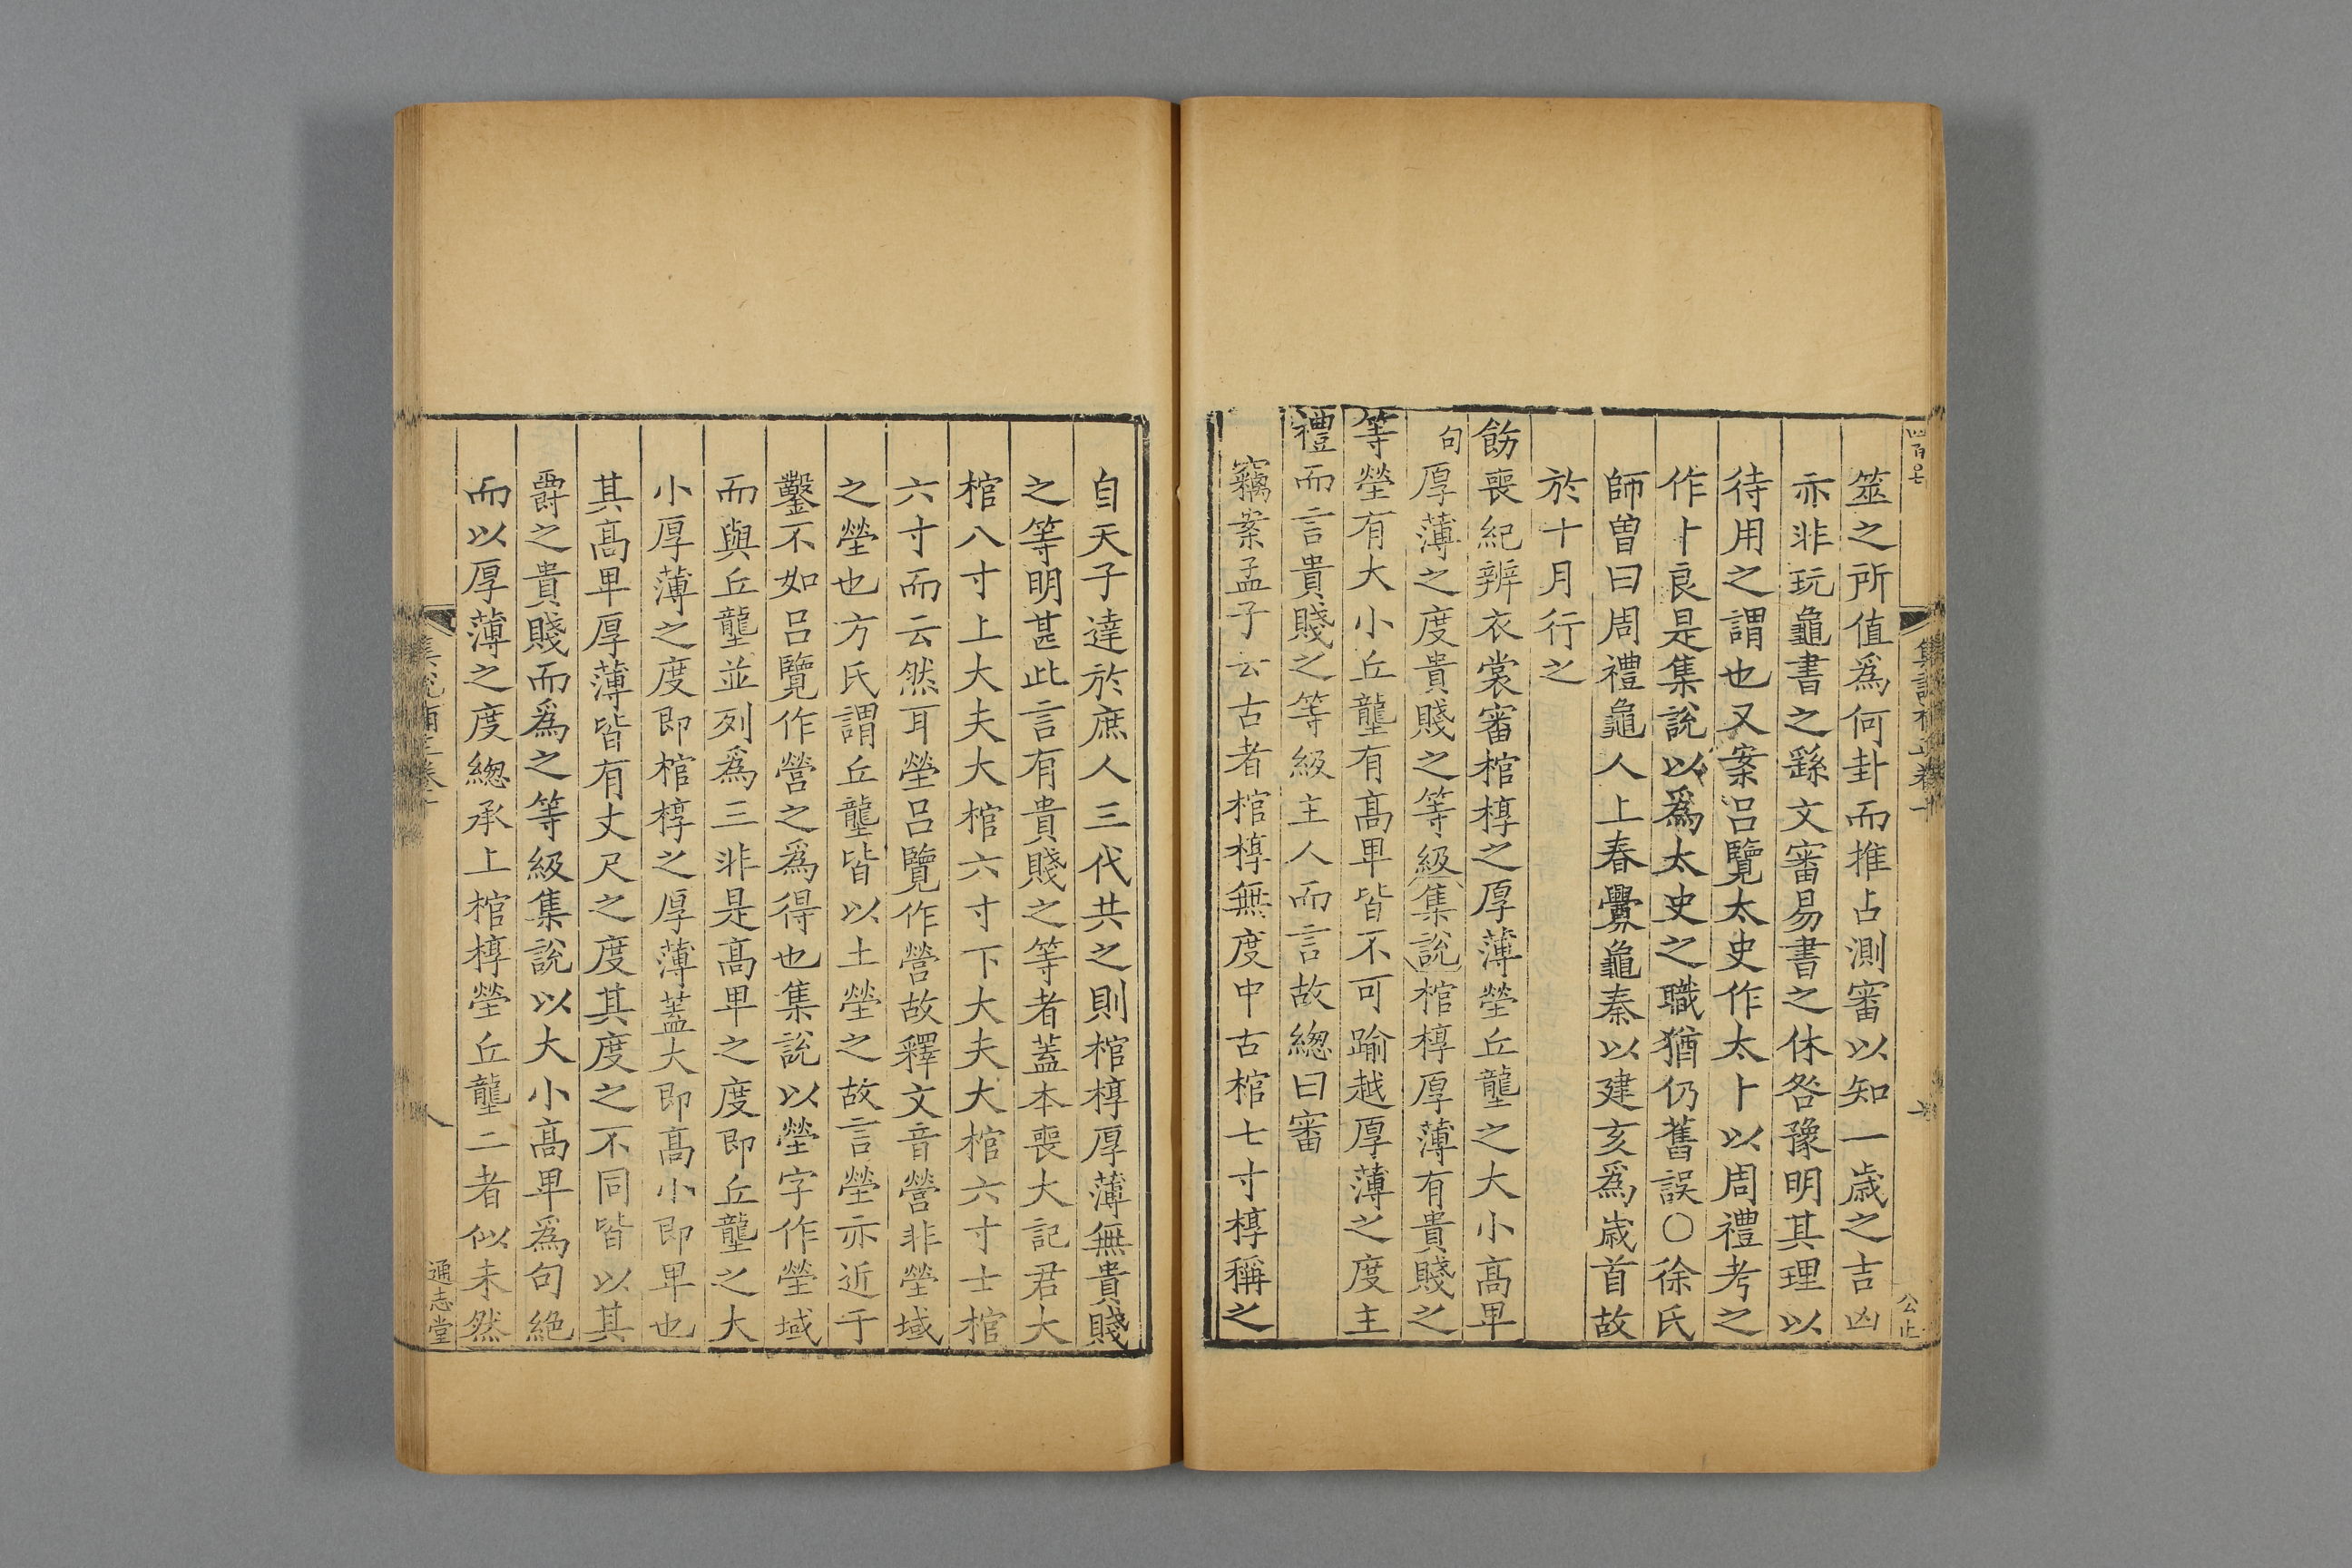 四百四七
集說補正卷十
公止
筮之所值爲何卦而推占測審以知一歲之吉凶
亦非玩龜書之繇文審易書之休咎豫明其理以
待用之謂也又案呂覽太史作太卜以周禮考之
作卜良是集說以爲太史之職猶仍舊誤〇徐氏
師曾曰周禮龜人上春釁龜秦以建亥爲歲首故
於十月行之
飭喪紀辨衣裳審棺椁之厚薄塋丘壟之大小高卑
句厚薄之度貴賤之等級集說棺椁厚薄有貴賤之
等塋有大小丘壟有高卑皆不可踰越厚薄之度主
禮而言貴賤之等級主人而言故緫曰審
竊案孟子云古者棺椁無度中古棺七寸椁稱之
自天子達於庶人三代共之則棺椁厚薄無貴賤
之等明甚此言有貴賤之等者蓋本喪大記君大
棺八寸上大夫大棺六寸下大夫大棺六寸士棺
六寸而云然耳塋呂覽作營故釋文音營非塋域
之塋也方氏謂丘壟皆以土塋之故言塋亦近于
鑿不如呂覽作營之爲得也集說以塋字作塋域
而與丘壟並列爲三非是高卑之度即丘壟之大
小厚薄之度即棺椁之厚薄蓋大即高小即卑也
其高卑厚薄皆有丈尺之度其度之不同皆以其
爵之貴賤而爲之等級集說以大小高卑爲句絕
而以厚薄之度緫承上棺椁塋丘壟二者似未然
集說補正卷十
八
通志堂